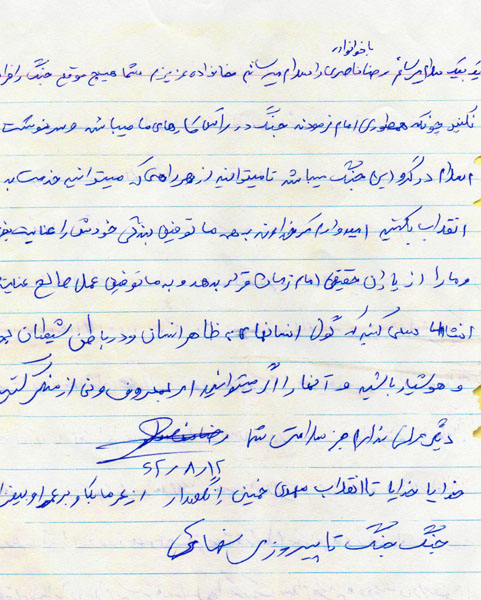 با خانواده
یک بیک سلام میرسانم رضا ناصری را سلام میرسانم خانواده عزیزم شما هیچ موقع جنگ را فرا
نکنید چونکه همطوری امام فرموده جنگ در رأس کارهای ما میباشد و سرنوشت
اسلام در گرو این جنگ میباشد تا میتوانید از هر راهی که میتوانید خدمت به
انقلاب بکنین امیدوارم که خداوند به همه ما توفیق بندگی خودش را عنایت بف
و ما را از یاران حقیقی امام زمان قرار بدهد و به ما توفیق عمل صالح عنایت
انشاالله سعی کنید که گول انسانهای به ظاهر انسان و در باطن شیطان
و هوشیار باشید و آنها را اگر میتوانید امر بمعروف و نهی از منکر کنید
دیگر عرضی ندارم جز سلامتی شما
۶۲/۸/۱۲
خدایا خدایا تا انقلاب مهدی خمینی را نگهدار از عمر ما بکاه و بر عمر او بیفزا
جنگ جنگ تا پیروزی نهائی